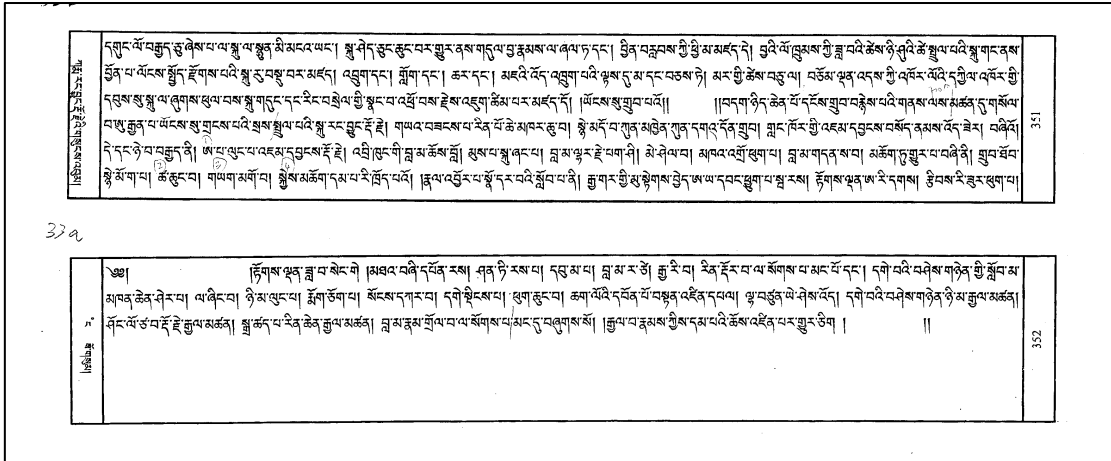 དགུང་ལོ་བརྒྱད་ཅུ་ཞེས་པ་ལ་སྐུ་ལ་སྙུན་མི་མངའ་ཡང་། སྐུ་ཤེད་ཅུང་ཆུང་བར་གྱུར་ནས་གདུལ་བྱ་རྣམས་ལ་ཞལ་ཏ་དང་། བྱིན་བརླབས་ཀྱི་ཕྱི་མ་མཛད་དེ། བྱའི་ལོ་ཁྲུམས་ཀྱི་ཟླ་བའི་ཚེས་ཉི་ཤུའི་ཚེ་སྤྲུལ་པའི་སྐུ་གང་ནས་
བྱོན་པ་ལོངས་སྤྱོད་རྫོགས་པའི་སྐུ་རུ་བསྡུ་བར་མཛད། འབྲུག་དང་། གློག་དང་། ཆར་དང་། མཇའི་འོད་འཁྲུག་པའི་ལྟས་དུ་མ་དང་བཅས་ཏེ། མར་གྱི་ཚེས་བཅུ་ལ། བཅོམ་ལྡན་འདས་ཀྱི་འཁོར་ལོའི་དཀྱིལ་འཁོར་གྱི་
དབུས་སུ་སྐུ་ལ་ཞུགས་ཕུལ་བས་སྐུ་གདུང་དང་རིང་བསྲེལ་གྱི་སྣང་བ་འཕྲོ་བས་རྗེས་འཇུག་ཚིམ་པར་མཛད་དོ། །ཡོངས་སུ་གྲུབ་པའོ།། །།བདག་ཉིད་ཆེན་པོ་དངོས་གྲུབ་བརྙེས་པའི་གནས་ལས་མཚན་དུ་གསོལ་
བ་ཨུ་རྒྱན་པ་ཡོངས་སུ་གྲགས་པའི་སྲས་སྤྲུལ་པའི་སྐུ་རང་བྱུང་རྡོ་རྗེ། གཡའ་བཟངས་པ་རིན་པོ་ཆེ་མཁར་ཆུ་བ། སྙེ་མདོ་བ་ཀུན་མཁྱེན་ཀུན་དགའ་དོན་གྲུབ། གླང་ཁོར་གྱི་འཇམ་དབྱངས་བསོད་ནམས་འོད་ཟེར། བཞིའོ།
དེ་དང་ཉེ་བ་བརྒྱད་ནི། ཨ་པ་ལུང་པ་འཇམ་དབྱངས་རྡོ་རྗེ། འབྲི་ཁུང་གི་བླ་མ་ཆོས་བློ། མུས་པ་སྐུ་ཞང་པ། བླ་མ་ལྷར་རྗེ་པག་ཤི། མེ་ཤེལ་བ། མཁའ་འགྲོ་ཕུག་པ། བླ་མ་གདན་ས་བ། མཆོག་ཏུ་གྱུར་པ་བཞི་ནི། གྲུབ་ཐོབ་
སྙེ་མོ་ག་པ། ཚ་ཆུང་བ། གཡག་མགོ་བ། སྐྱེས་མཆོག་དམ་པ་རི་ཁྲོད་པའོ། །རྣལ་འབྱོར་པ་སྔོ་དར་བའི་སློབ་པ་ནི། རྒྱ་གར་གྱི་མུ་སྟེགས་བྱེད་ཨ་ཡ་དབང་ཕྱུག་པ་སྦ་རས། རྟོགས་ལྡན་ཨ་རི་དགས། རྩིབས་རི་ཟུར་ཕུག་པ།
351
33a
༄༅། །རྟོགས་ལྡན་ཟླ་བ་སེང་གེ །མཐའ་བཞི་དཔོན་རས། ཤན་ཏི་རས་པ། དབུ་མ་པ། བླ་མ་ར་ཙེ། རྒྱ་རི་བ། རིན་རྡོར་བ་ལ་སོགས་པ་མང་པོ་དང་། དགེ་བའི་བཤེས་གཉེན་གྱི་སློབ་མ་
མཁན་ཆེན་ཤེར་བ། ལ་ཞིང་བ། ཉི་མ་ལུང་པ། རྨོག་ཅོག་པ། སོངས་དཀར་བ། དགེ་སྡིངས་པ། ཕུག་ཆུང་བ། ཆག་ལོའི་དབོན་པོ་བསྟན་འཛིན་དཔལ། ལྷ་བཙུན་ཡེ་ཤེས་འོད། དགེ་བའི་བཤེས་གཉེན་ཉི་མ་རྒྱལ་མཚན།
ཤོང་ལོ་ཙཱ་བ་རྡོ་རྗེ་རྒྱལ་མཚན། སྒྲ་ཚད་པ་རིན་ཆེན་རྒྱལ་མཚན། བླ་མ་རྣམ་གྲོལ་བ་ལ་སོགས་པ་མང་དུ་བཞུགས་སོ། །རྒྱལ་བ་རྣམས་ཀྱིས་དམ་པའི་ཆོས་འཛིན་པར་གྱུར་ཅིག །།
352